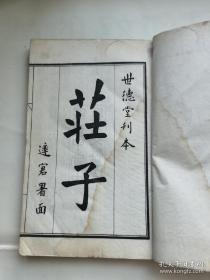 世德堂刊本
莊子
達窩署面